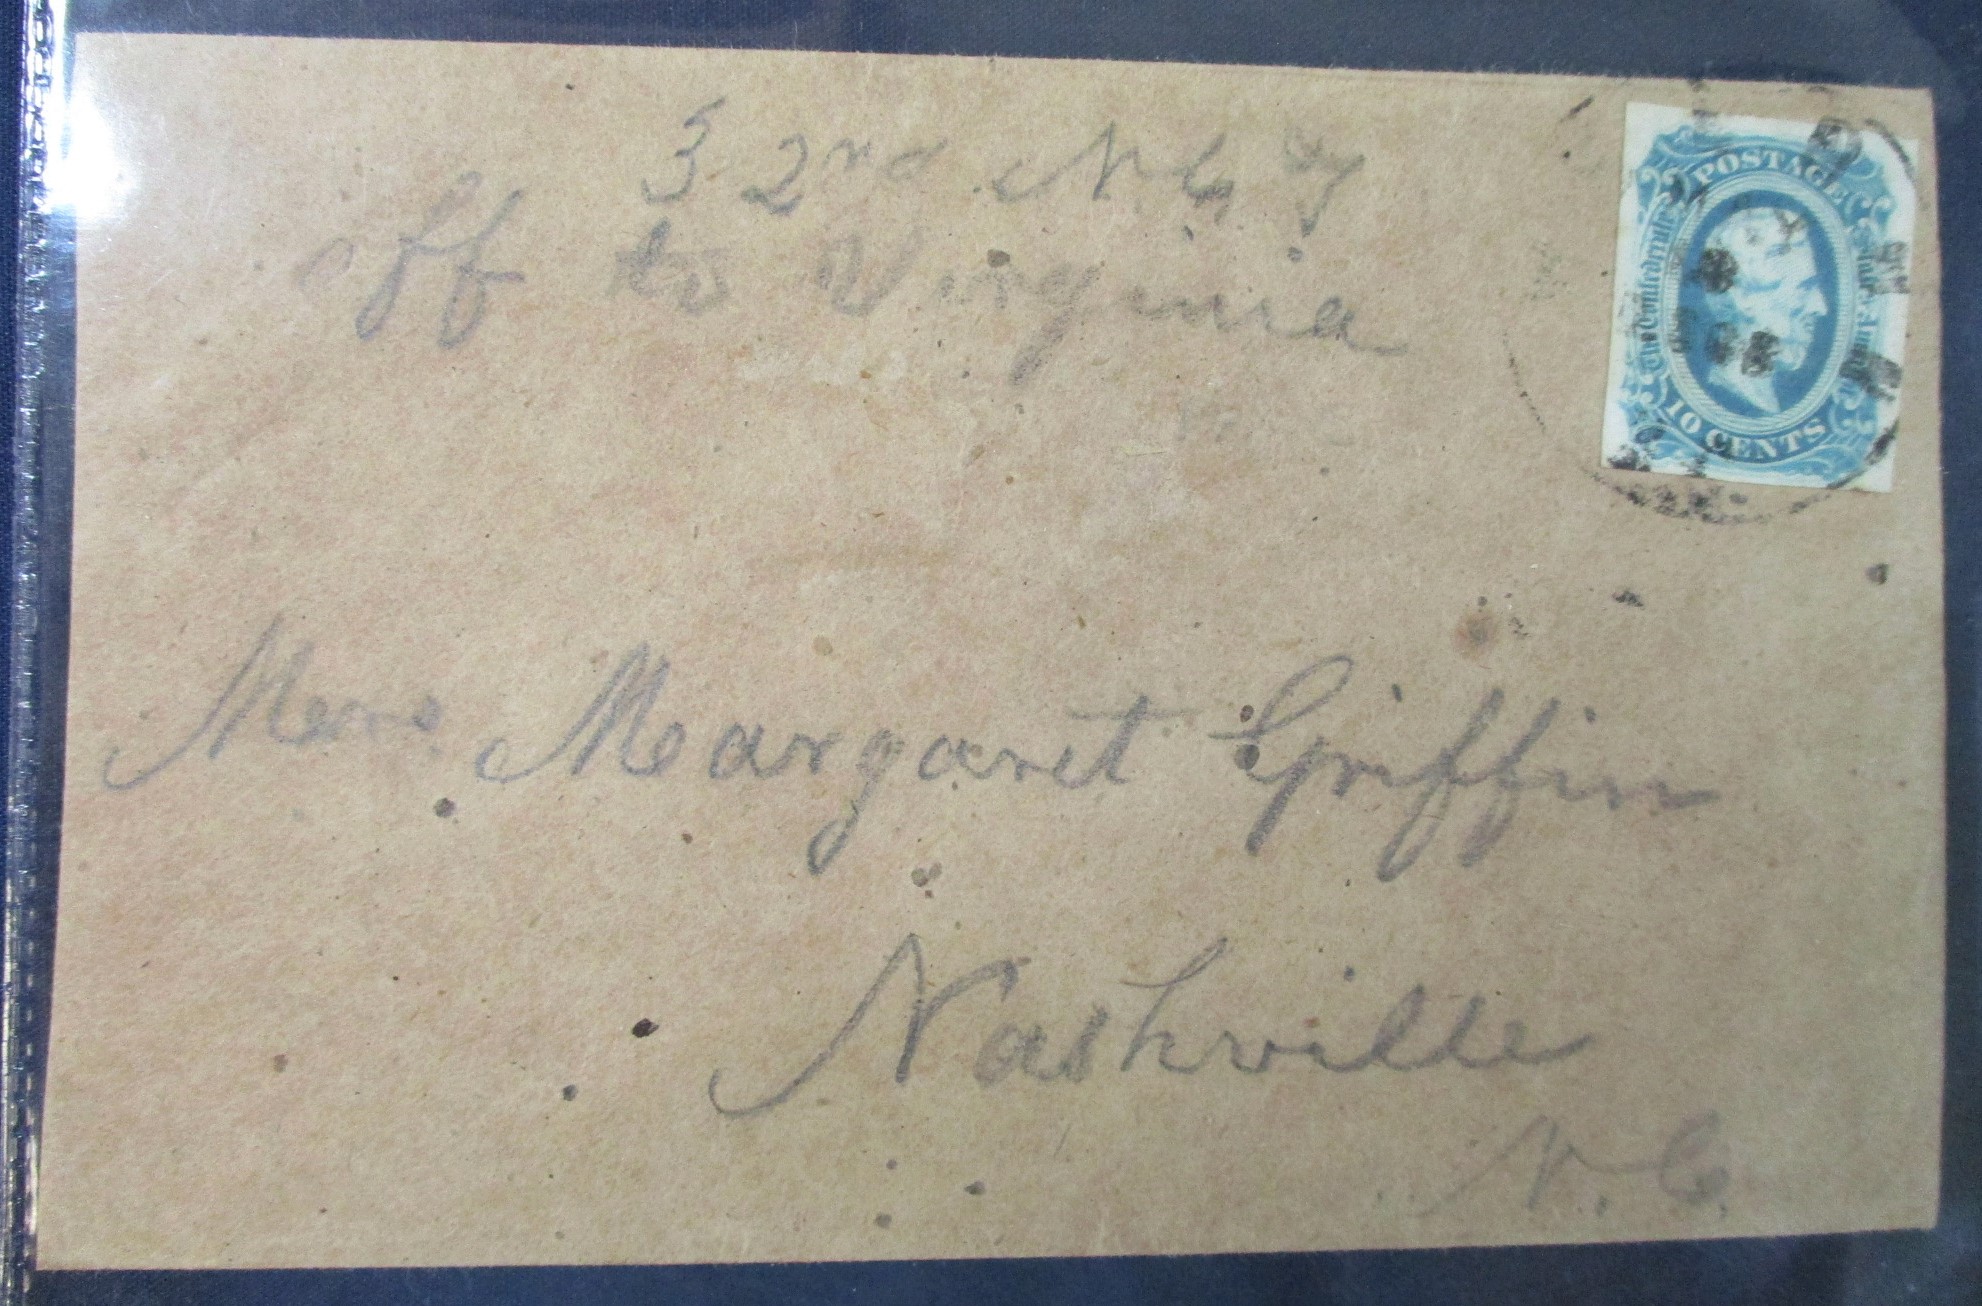 32nd N C
off to Virginia
POSTAGE
The Confederate States of America
10 CENTS
Mrs. Margaret Griffin
Nashville
N. C.